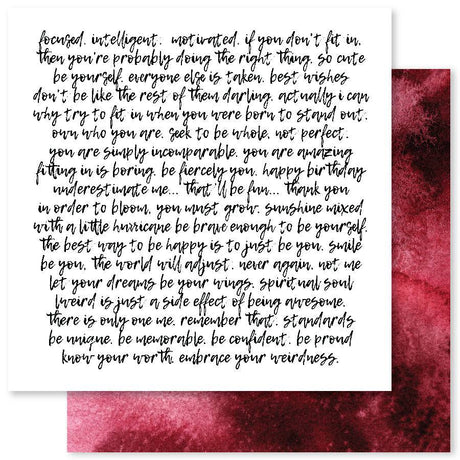 focused. intelligent. motivated. if you don't fit in,
then you're probably doing the right thing. so cute
be yourself. everyone else is taken. best wishes
don't be like the rest of them darling. actually i can
why try to fit in when you were born to stand out.
own who you are. seek to be whole, not perfect.
you are simply incomparable. you are amazing
fitting in is boring. be fiercely you. happy birthday
underestimate me... that'll be fun... thank you
in order to bloom, you must grow. sunshine mixed
with a little hurricane be brave enough to be yourself.
the best way to be happy is to just be you. smile
be you, the world will adjust. never again. not me
let your dreams be your wings. spiritual soul
weird is just a side effect of being awesome.
there is only one me. remember that. standards
be unique. be memorable. be confident. be proud
know your worth. embrace your weirdness.